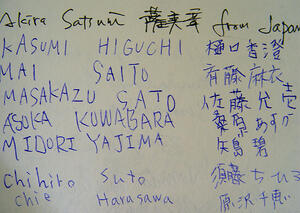 Akira Satsumi 薩美 from Japan
KASUMI HIGUCHI 樋口香澄
MAI SAITO 斉藤麻衣
MASAKAZU SATO 佐藤允壱
ASUKA KUWABARA 桑原あすか
MIDORI YAJIMA 矢島 碧
Chihiro Suto 須藤ちひろ
Chie Harasawa 原沢千恵